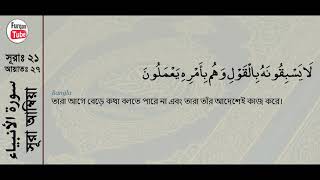 Furqan
Tube
সূরাঃ ২১
আয়াতঃ ২৭
سورة الأنبياء
সূরা আম্বিয়া
لَا يَسْبِقُونَهُ بِالْقَوْلِ وَهُم بِأَمْرِهِ يَعْمَلُونَ
Bangla
তারা আগে বেড়ে কথা বলতে পারে না এবং তারা তাঁর আদেশেই কাজ করে।